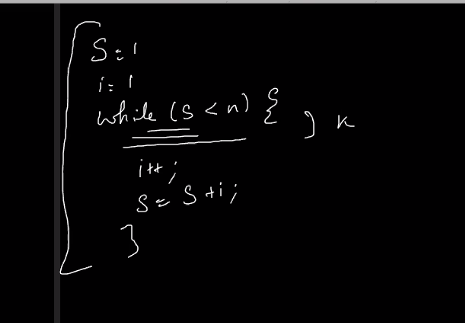 S=1
i=1
while (s < n) { } k
i++;
s = s+i;
}